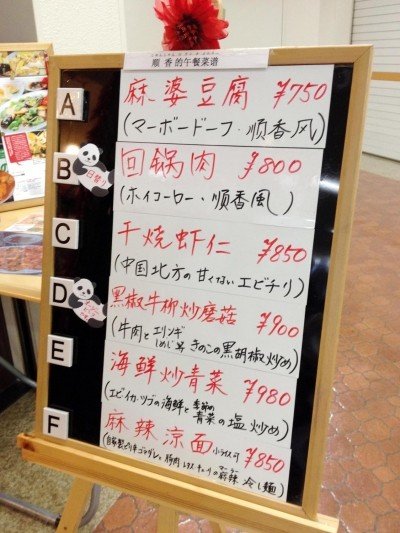 順香的午餐菜谱
A
麻婆豆腐 ¥750
(マーボードーフ・順香风)
B
回锅肉 ¥800
(ホイコーロー・順香風)
C
干烧虾仁 ¥850
(中国北方の甘くないエビチリ)
D
黑椒牛柳炒磨菇 ¥900
(牛肉とエリンギ しめじ きのこの黒胡椒炒め)
E
海鲜炒青菜 ¥980
(エビイカ・ツブの海鮮と季節の青菜の塩炒め)
F
麻辣涼面 小ライス付 ¥850
冷し麺)